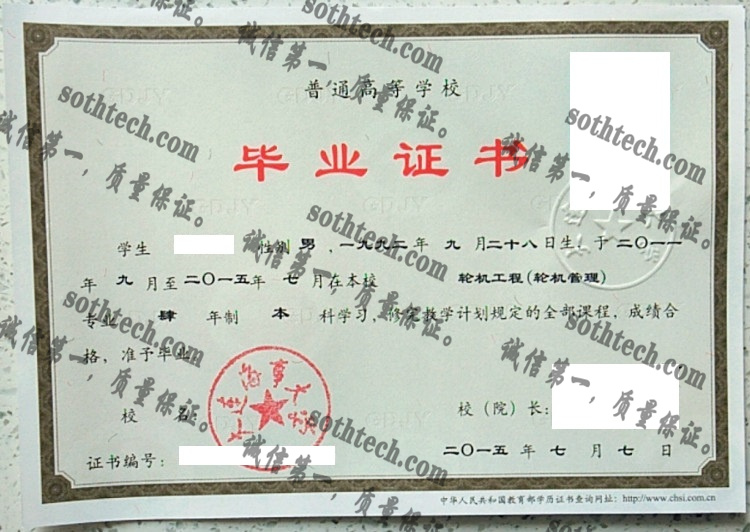 普通高等学校
毕业证书
学生 性别 男 ，一九九二年 九 月二十八日生，于二〇一一
年 九 月至二〇一五年 七 月在本校 轮机工程(轮机管理)
专业 肆 年制 本 科学习，修完教学计划规定的全部课程，成绩合
格，准予毕业。
校 名：
校（院）长：
大连海事大学
证书编号：
二〇一五 年 七 月 七 日
中华人民共和国教育部学历证书查询网址：http://www.chsi.com.cn
sothtech.com
诚信第一，质量保证。
sothtech.com
诚信第一，质量保证。
sothtech.com
诚信第一，质量保证。
sothtech.com
诚信第一，质量保证。
sothtech.com
诚信第一，质量保证。
sothtech.com
诚信第一，质量保证。
sothtech.com
诚信第一，质量保证。